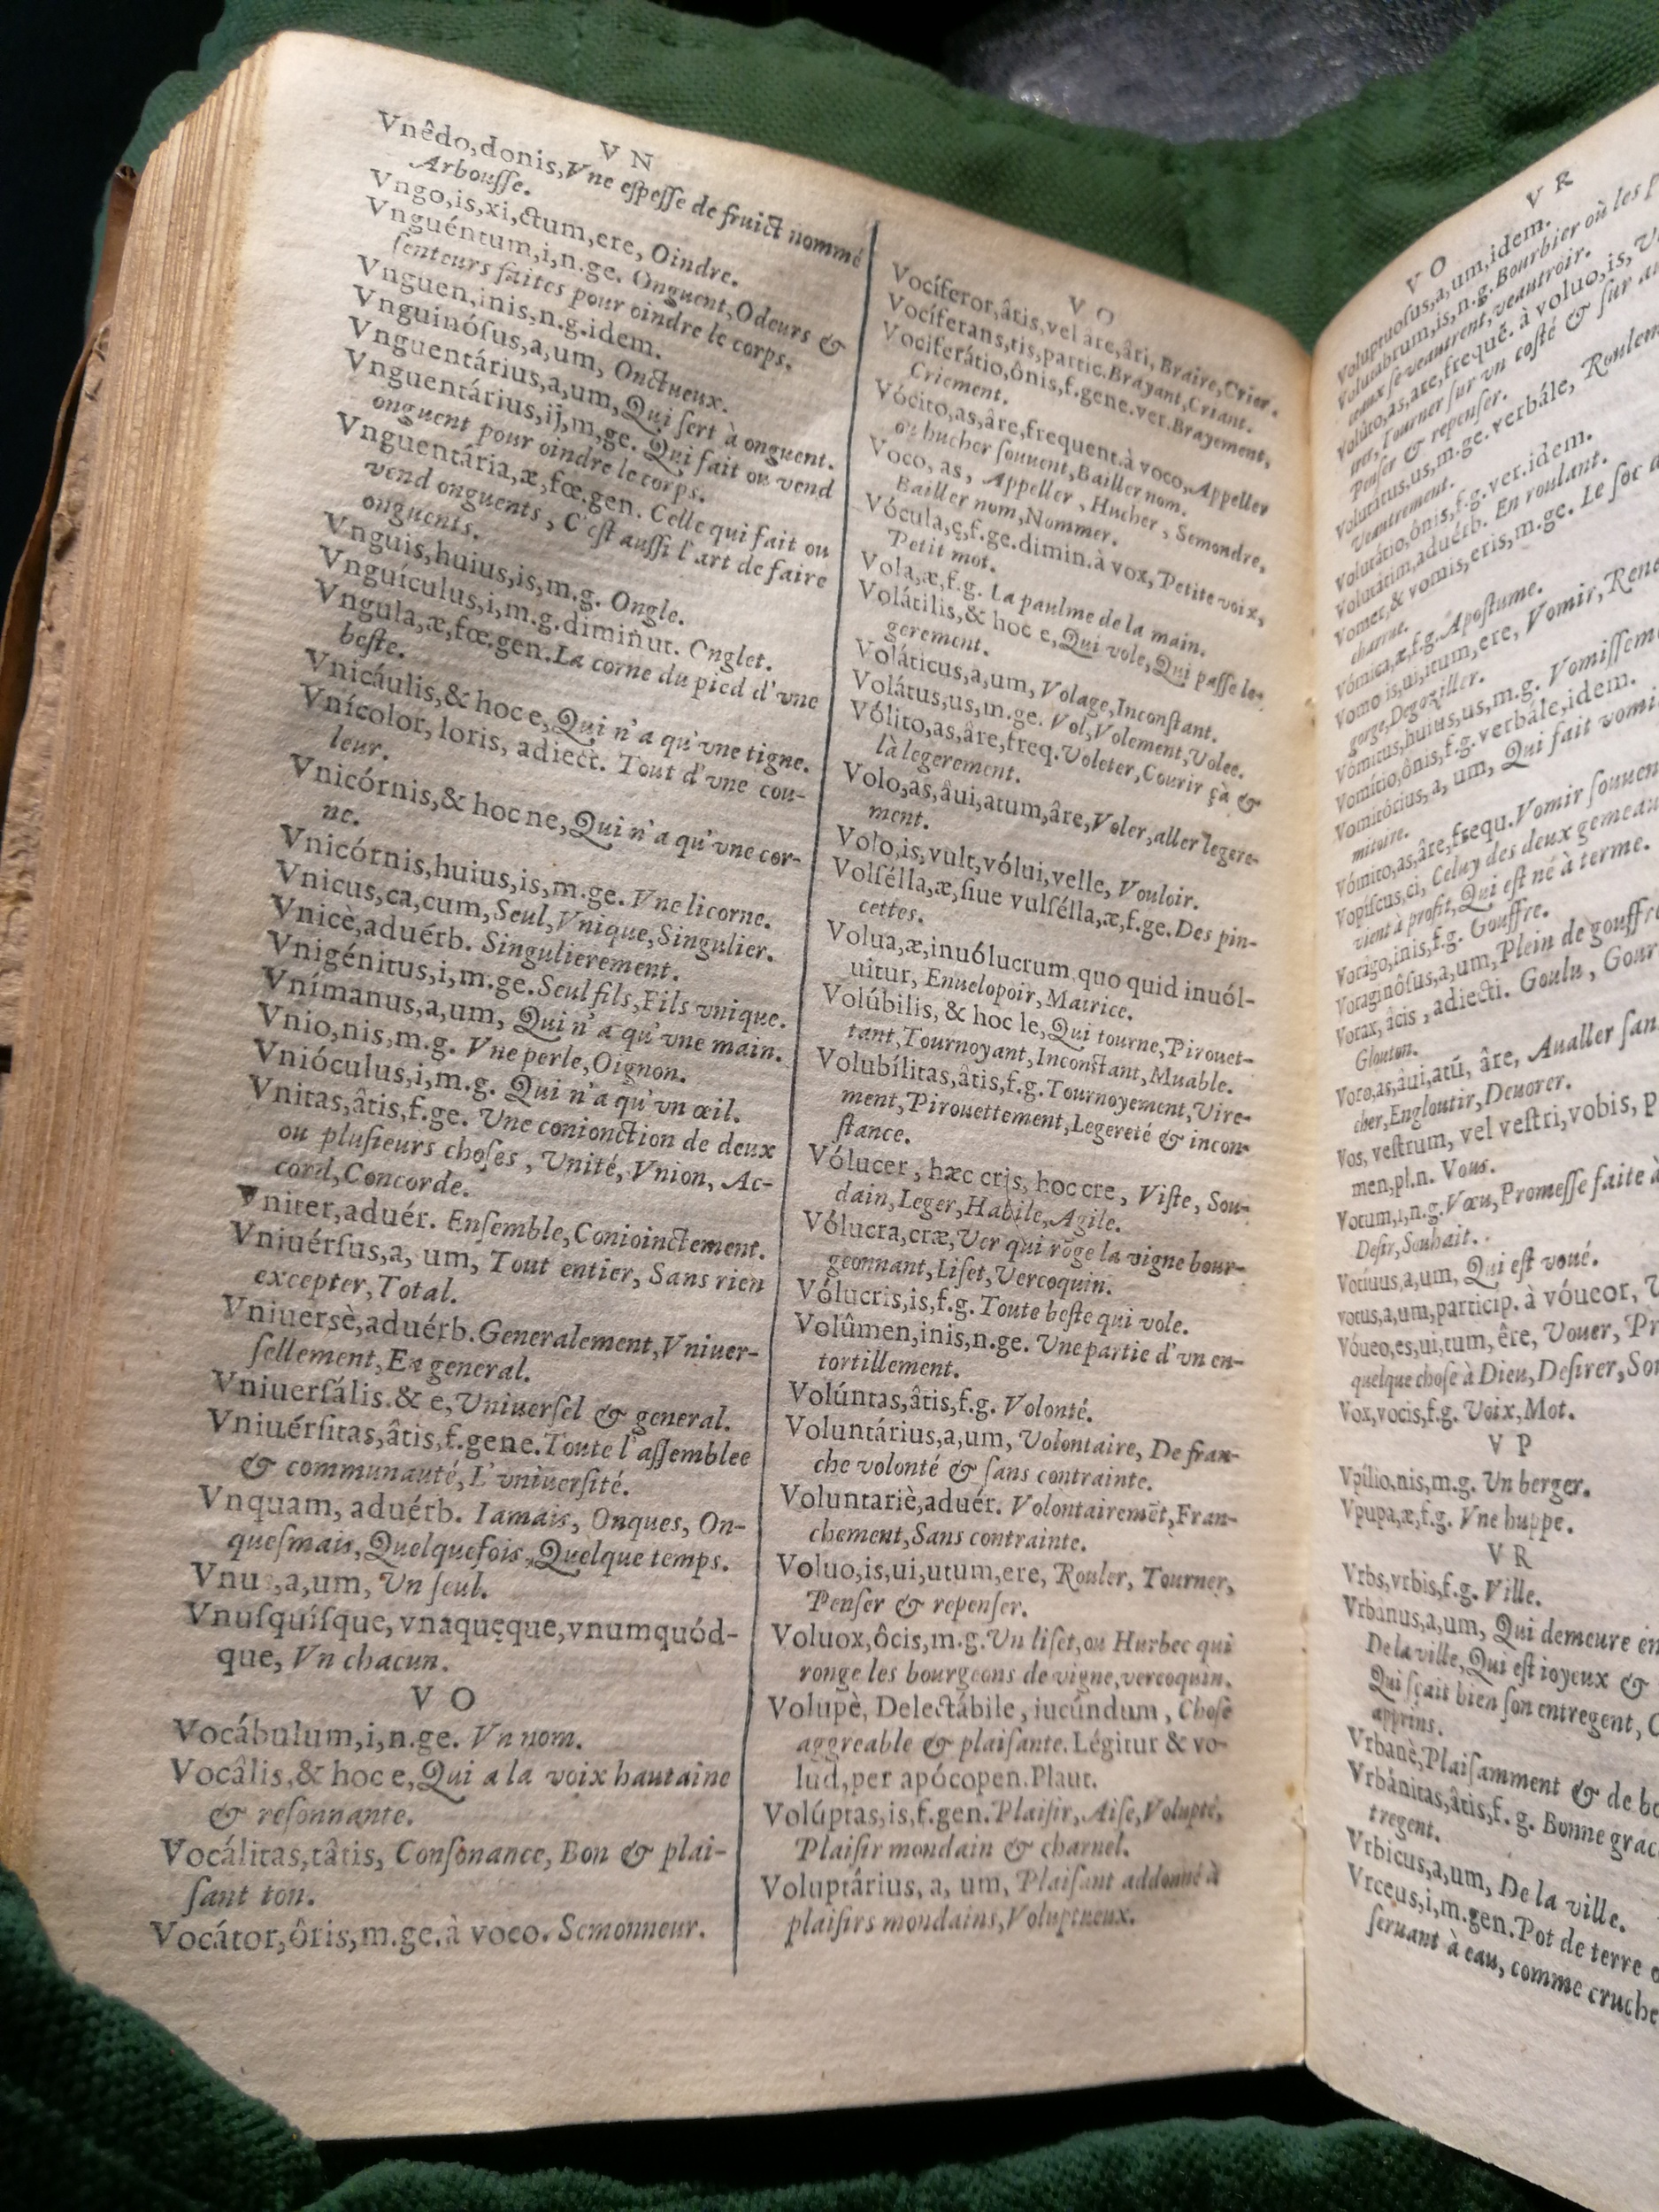 V N
Vnêdo,donis,Vne eſpeſſe de fruict nommé
Arbouſſe.
Vngo,is,xi,ctum,ere, Oindre.
Vnguéntum,i,n.ge. Onguent,Odeurs &
ſenteurs faites pour oindre le corps.
Vnguen,inis,n.g.idem.
Vnguinóſus,a,um, Onctueux.
Vnguentárius,a,um, Qui ſert à onguent.
Vnguentárius,ij,m,ge. Qui fait ou vend
onguent pour oindre le corps.
Vnguentária,æ,fœ.gen. Celle qui fait ou
vend onguents , C'eſt auſſi l'art de faire
onguents.
Vnguis,huius,is,m.g. Ongle.
Vnguículus,i,m.g.diminut. Onglet.
Vngula,æ,fœ.gen.La corne du pied d'vne
beſte.
Vnicáulis,& hoc e,Qui n'a qu'vne tigne.
Vnícolor, loris, adiect. Tout d'vne cou-
leur.
Vnicórnis,& hoc ne,Qui n'a qu'vne cor-
ne.
Vnicórnis,huius,is,m.ge. Vne licorne.
Vnicus,ca,cum,Seul,Vnique,Singulier.
Vnicè,aduérb. Singulierement.
Vnigénitus,i,m.ge.Seul fils,Fils vnique.
Vnímanus,a,um, Qui n'a qu'vne main.
Vnio,nis,m.g. Vne perle,Oignon.
Vnióculus,i,m.g. Qui n'a qu'vn œil.
Vnitas,âtis,f.ge. Vne conionction de deux
ou pluſieurs choſes , Vnité, Vnion, Ac-
cord,Concorde.
Vniter,aduér. Enſemble,Conioinctement.
Vniuérſus,a, um, Tout entier, Sans rien
excepter,Total.
Vniuersè,aduérb.Generalement,Vniuer-
ſellement,En general.
Vniuerſális.& e,Vniuerſel & general.
Vniuérſitas,âtis,f.gene.Toute l'aſſemblee
& communauté,L'vniuerſité.
Vnquam, aduérb. Iamais, Onques, On-
queſmais,Quelquefois,Quelque temps.
Vnu ,a,um, Vn ſeul.
Vnuſquíſque,vnaquęque,vnumquód-
que, Vn chacun.
V O
Vocábulum,i,n.ge. Vn nom.
Vocâlis,& hoc e,Qui a la voix hautaine
& reſonnante.
Vocálitas,tâtis, Conſonance, Bon & plai-
ſant ton.
Vocátor,ôris,m.ge.à voco. Semonneur.
V O
Vocíferor,âtis,vel are,âri, Braire,Crier.
Vocíferans,tis,partic.Brayant,Criant.
Vociferátio,ônis,f.gene.ver.Brayement,
Criement.
Vócito,as,âre,frequent.à voco,Appeller
ou hucher ſouuent,Bailler nom.
Voco, as , Appeller , Hucher , Semondre,
Bailler nom,Nommer.
Vócula,ę,f.ge.dimin.à vox,Petite voix,
Petit mot.
Vola,æ,f.g. La paulme de la main.
Volátilis,& hoc e,Qui vole,Qui paſſe le-
gerement.
Voláticus,a,um, Volage,Inconſtant.
Volátus,us,m.ge. Vol,Volement,Volee.
Vólito,as,âre,freq.Voleter,Courir çà &
là legerement.
Volo,as,âui,atum,âre,Voler,aller legere-
ment.
Volo,is,vult,vólui,velle, Vouloir.
Volſélla,æ,ſiue vulſélla,æ,f.ge.Des pin-
cettes.
Volua,æ,inuólucrum quo quid inuól-
uitur, Enuelopoir,Matrice.
Volúbilis, & hoc le,Qui tourne,Pirouet-
tant,Tournoyant,Inconſtant,Muable.
Volubílitas,âtis,f.g.Tournoyement,Vire-
ment,Pirouettement,Legereté & incon-
ſtance.
Vólucer , hæc cris, hoc cre, Viſte, Sou-
dain,Leger,Habile,Agile.
Vólucra,cræ,Ver qui rõge la vigne bour-
geonnant,Liſet,Vercoquin.
Vólucris,is,f.g.Toute beſte qui vole.
Volûmen,inis,n.ge. Vne partie d'vn en-
tortillement.
Volúntas,âtis,f.g. Volonté.
Voluntárius,a,um, Volontaire, De fran-
che volonté & ſans contrainte.
Voluntariè,aduér. Volontairemẽt,Fran-
chement,Sans contrainte.
Voluo,is,ui,utum,ere, Rouler, Tourner,
Penſer & repenſer.
Voluox,ôcis,m.g.Vn liſet,ou Hurbec qui
ronge les bourgeons de vigne,vercoquin.
Volupè, Delectábile, iucúndum, Choſe
aggreable & plaiſante.Légitur & vo-
lud,per apócopen.Plaut.
Volúptas,is,f.gen.Plaiſir,Aiſe,Volupté,
Plaiſir mondain & charnel.
Voluptárius, a, um, Plaiſant addonné à
plaiſirs mondains,Voluptueux.
V O V R
Voluptuoſus,a,um,idem.
Volutabrum,is,n.g.Bourbier où les p
ceaux ſe veautrent,veautroir.
Volúto,as,are,frequẽ. à voluo,is, V
trer,Tourner ſur vn coſté & ſur au
Penſer & repenſer.
Volutátus,us,m.ge.verbále, Roulem
Veautrement.
Volutátio,ônis,f.g.ver.idem.
Volutátim,aduérb. En roulant.
Vomer,& vomis,eris,m.ge. Le ſoc d
charrue.
Vómica,æ,f.g.Apoſtume.
Vomo is,ui,itum,ere, Vomir, Rend
gorge,Degoziller.
Vómitus,huius,us,m.g. Vomiſſeme
Vomítio,ônis,f.g.verbále,idem.
Vomitórius,a, um, Qui fait vomi
mitoire.
Vómito,as,âre,frequ.Vomir ſouuen
Vopíſcus,ci, Celuy des deux gemeau
vient à profit,Qui eſt né à terme.
Vorágo,inis,f.g. Gouffre.
Voraginôſus,a,um,Plein de gouffre
Vorax, âcis , adiecti. Goulu , Gour
Glouton.
Voro,as,âui,atũ, âre, Aualler ſan
cher,Engloutir,Deuorer.
Vos, veſtrum, vel veſtri,vobis, p
men,pl.n. Vous.
Votum,i,n.g.Vœu,Promeſſe faite à
Deſir,Souhait.
Votiuus,a,um, Qui eſt voué.
votus,a,um,particip. à vóueor, V
Vóueo,es,ui,tum, êre, Vouer, Pr
quelque choſe à Dieu,Deſirer,Sou
Vox,vocis,f.g. Voix,Mot.
V P
Vpílio,nis,m.g. Vn berger.
Vpupa,æ,f.g. Vne huppe.
V R
Vrbs,vrbis,f.g. Ville.
Vrbânus,a,um, Qui demeure en
De la ville,Qui eſt ioyeux &
Qui ſçait bien ſon entregent, C
apprins.
Vrbanè,Plaiſamment & de bo
Vrbánitas,âtis,f. g. Bonne grac
tregent.
Vrbicus,a,um, De la ville.
Vrceus,i,m.gen.Pot de terre o
ſeruant à eau, comme cruche